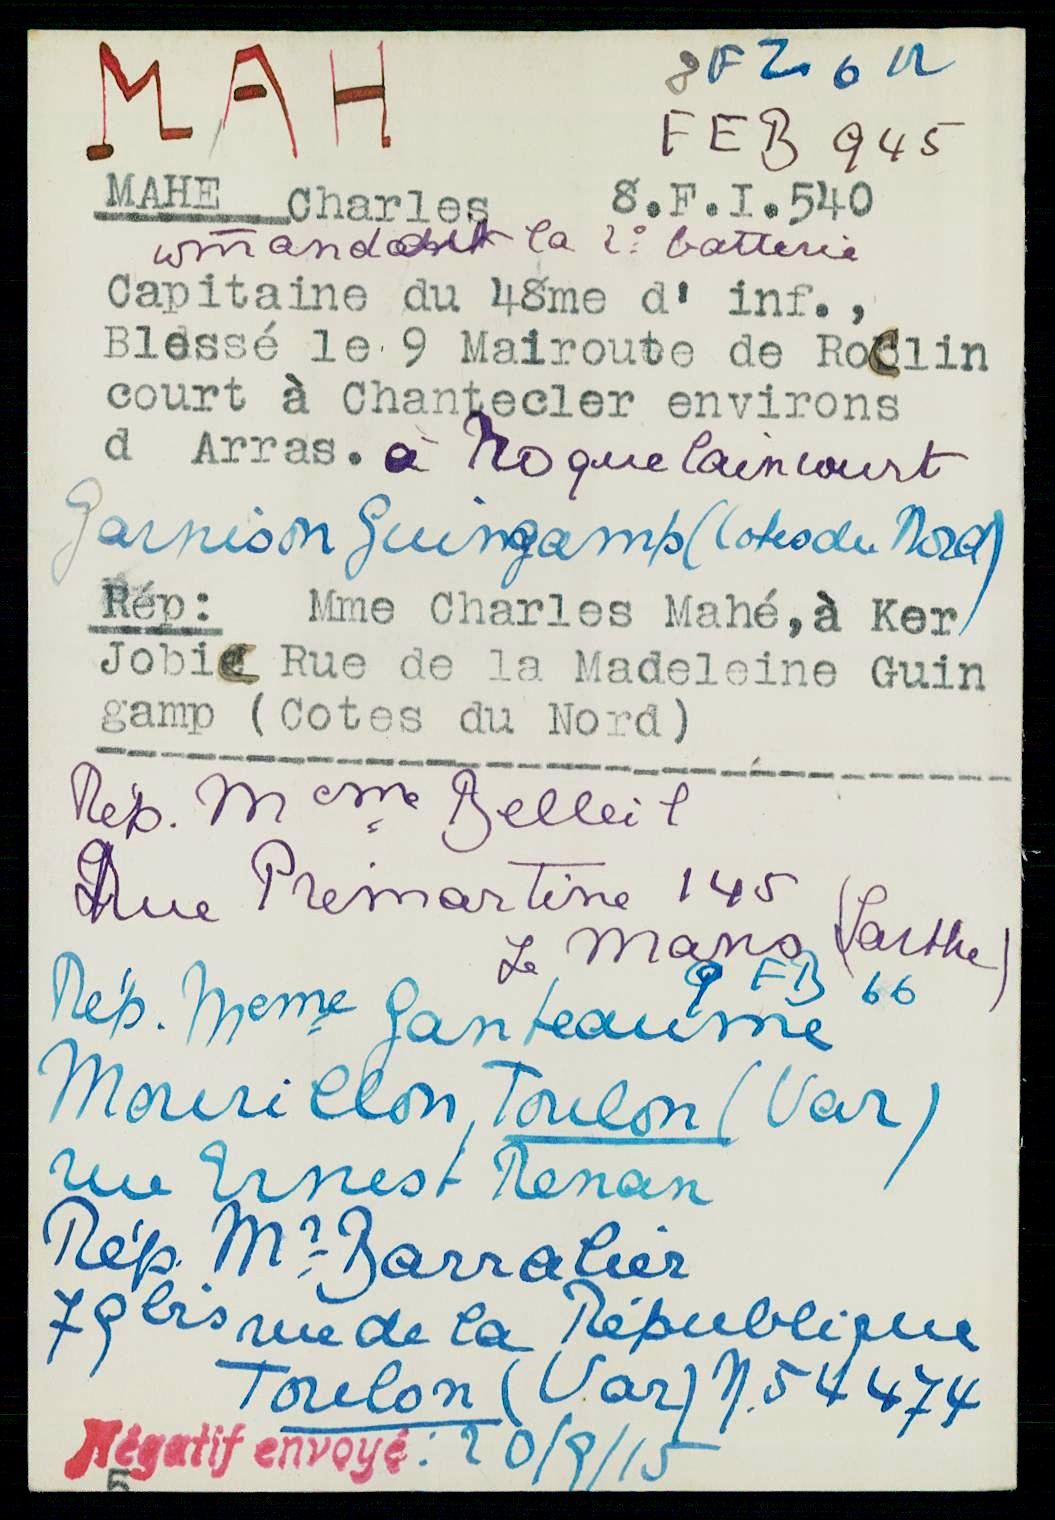 MAH
8 F Z 6 12
FEB 945
MAHE Charles 8.F.I.540
commandant la 2e batterie
Capitaine du 48me d' inf.,
Blessé le 9 Mairoute de Roclin
court à Chantecler environs
d Arras. à Roquelaincourt
Garnison Guingamp (Cotes du Nord)
Rép: Mme Charles Mahé, à Ker
Jobic Rue de la Madeleine Guin
gamp (Cotes du Nord)
Rép. Meme Belleil
Rue Premartine 145
Le Mans (Sarthe)
9 FB 66
Rép. Meme Ganteaume
Mourillon, Toulon (Var)
rue Ernest Renan
Rép. Mr Barralier
79 bis rue de la République
Toulon (Var) N. 54474
Négatif envoyé: 20/9/15
5